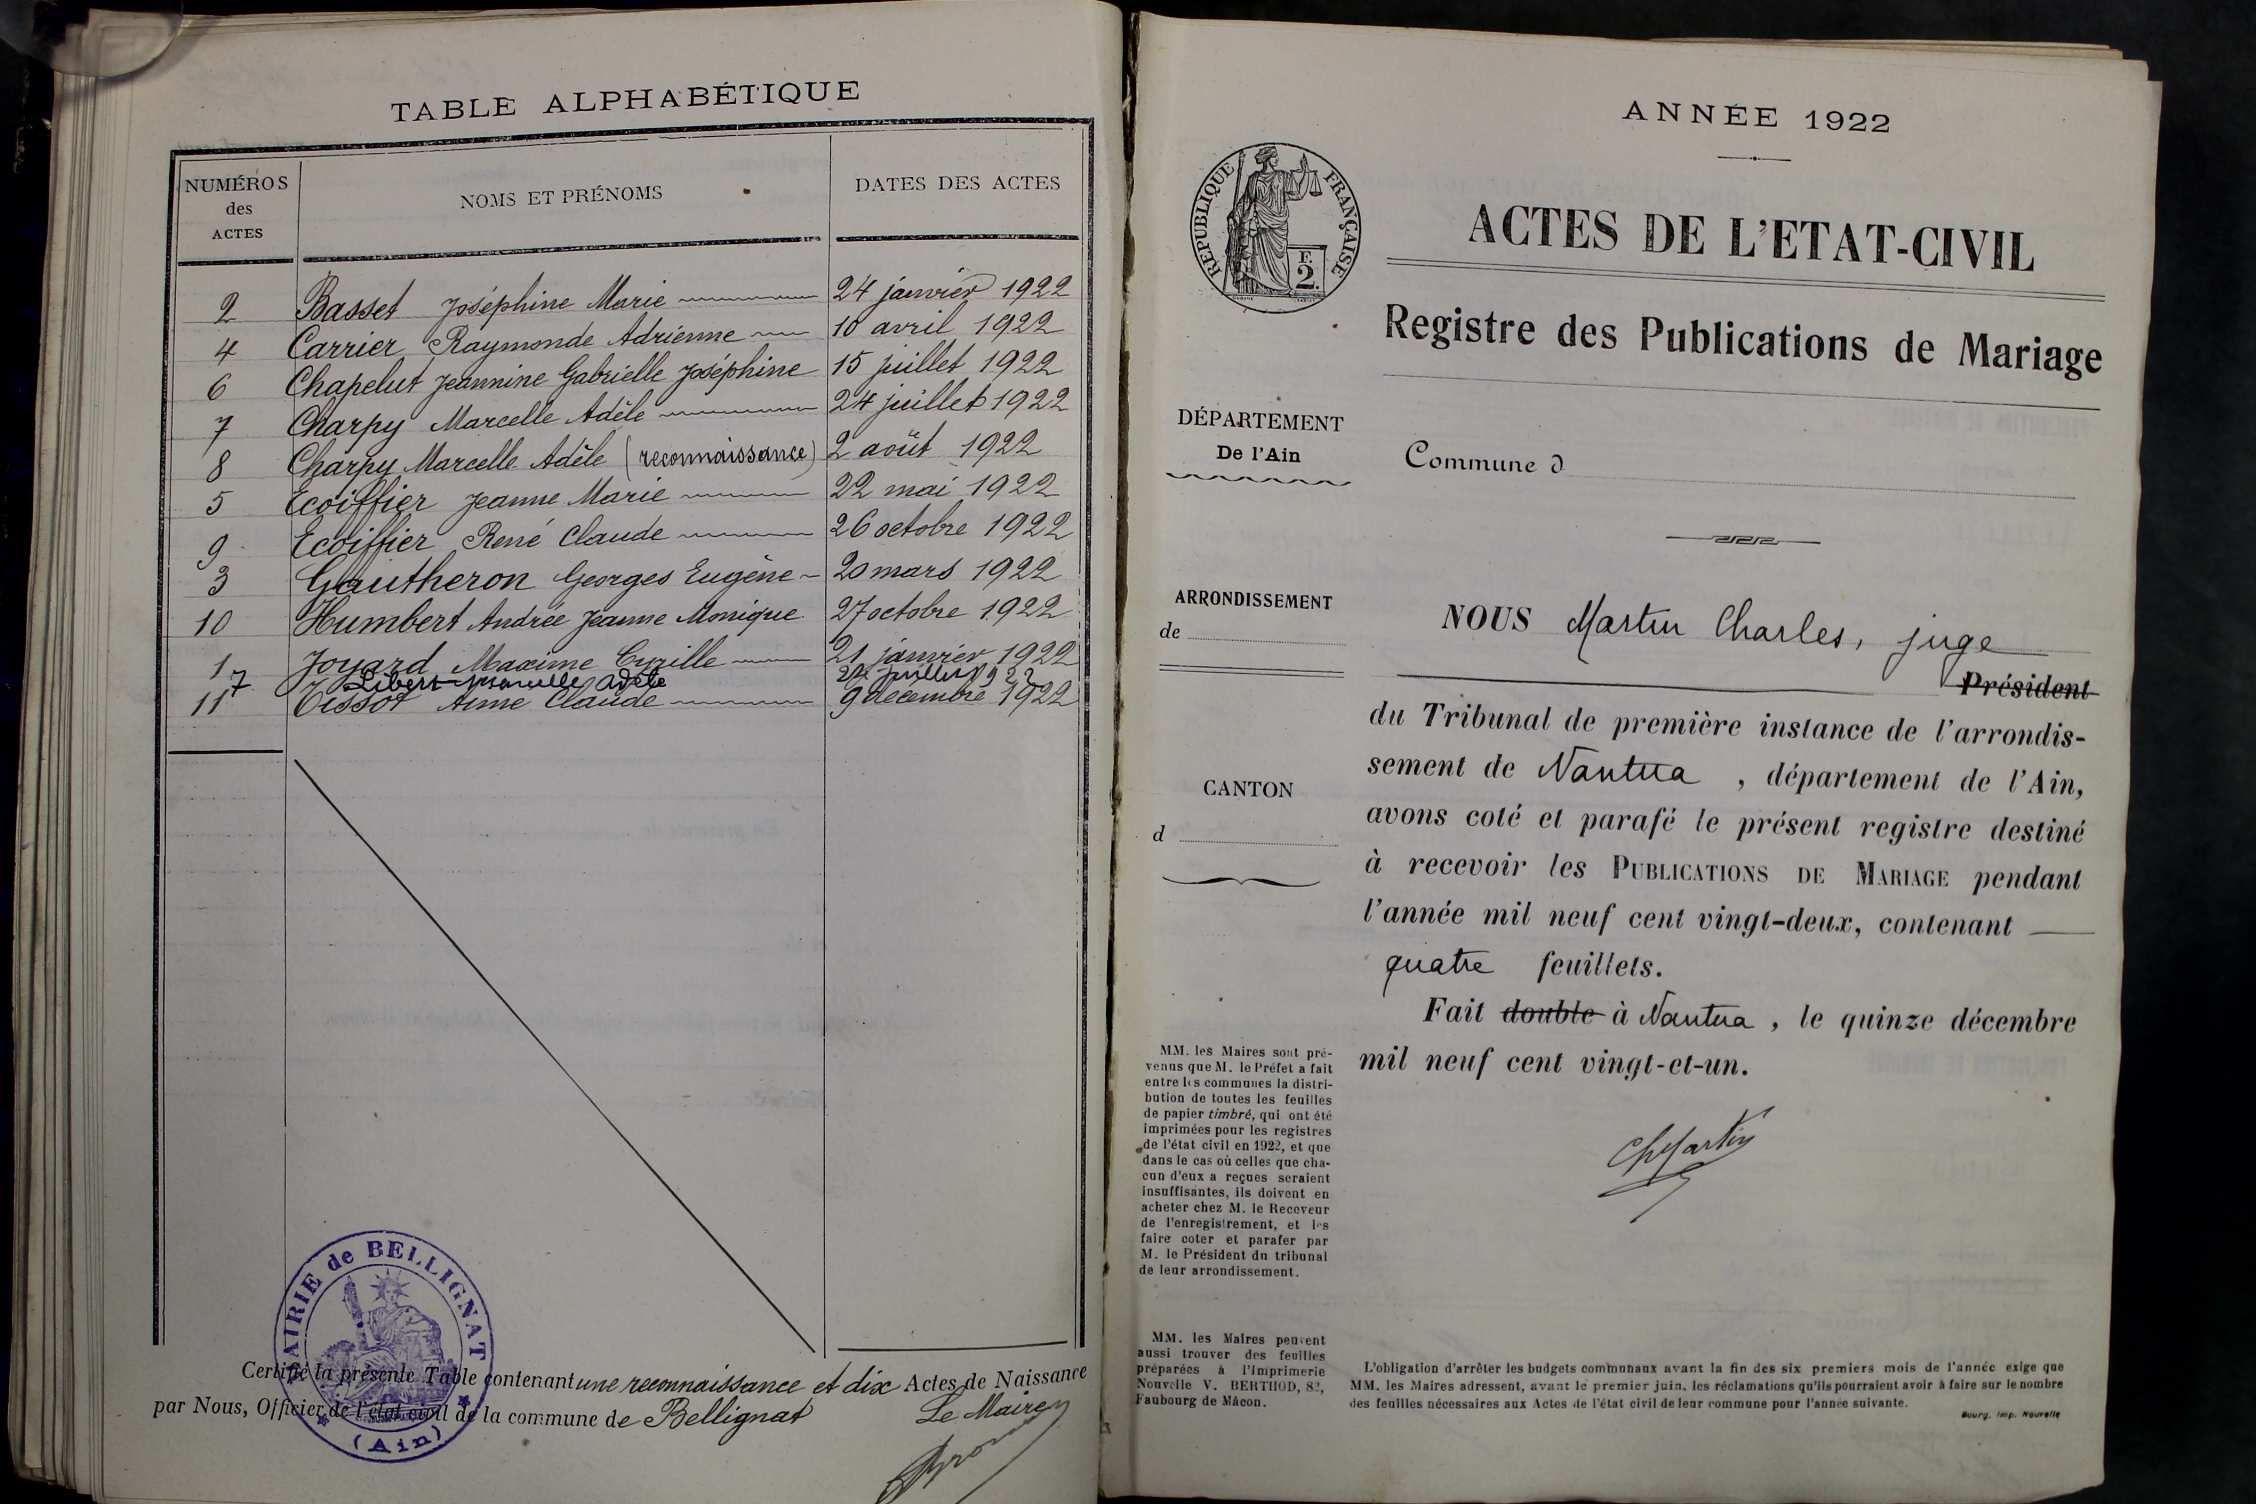 TABLE ALPHABÉTIQUE
NUMÉROS des ACTES
NOMS ET PRÉNOMS
DATES DES ACTES
2 Basset Joséphine Marie 24 janvier 1922
4 Carrier Raymonde Adrienne 10 avril 1922
6 Chapelut Jeannine Gabrielle Joséphine 15 juillet 1922
7 Charpy Marcelle Adèle 24 juillet 1922
8 Charpy Marcelle Adèle (reconnaissance) 2 août 1922
5 Ecoiffier Jeanne Marie 22 mai 1922
9 Ecoiffier René Claude 26 octobre 1922
3 Gautheron Georges Eugène 20 mars 1922
10 Humbert Andrée Jeanne Monique 27 octobre 1922
1 Joyard Maxime Cyrille 21 janvier 1922
7 Libert Marcelle Adèle 24 juillet 1922
11 Tissot Aimé Claude 9 décembre 1922
Certifié la présente Table contenant une reconnaissance et dix Actes de Naissance
par Nous, Officier de l'état civil de la commune de Bellignat Le Maire
MAIRIE de BELLIGNAT
(Ain)
ANNÉE 1922
RÉPUBLIQUE FRANÇAISE
F. 2.
ACTES DE L'ETAT-CIVIL
Registre des Publications de Mariage
DÉPARTEMENT
De l'Ain
Commune d
ARRONDISSEMENT
de
CANTON
d
NOUS Martin Charles, juge
Président
du Tribunal de première instance de l'arrondis-
sement de Nantua, département de l'Ain,
avons coté et parafé le présent registre destiné
à recevoir les PUBLICATIONS DE MARIAGE pendant
l'année mil neuf cent vingt-deux, contenant
quatre feuillets.
Fait double à Nantua, le quinze décembre
mil neuf cent vingt-et-un.
ChMartin
MM. les Maires sont pré-
venus que M. le Préfet a fait
entre les communes la distri-
bution de toutes les feuilles
de papier timbré, qui ont été
imprimées pour les registres
de l'état civil en 1922, et que
dans le cas où celles que cha-
cun d'eux a reçues seraient
insuffisantes, ils doivent en
acheter chez M. le Receveur
de l'enregistrement, et les
faire coter et parafer par
M. le Président du tribunal
de leur arrondissement.
MM. les Maires peuvent
aussi trouver des feuilles
préparées à l'Imprimerie
Nouvelle V. BERTHOD, 82,
Faubourg de Mâcon.
L'obligation d'arrêter les budgets communaux avant la fin des six premiers mois de l'année exige que
MM. les Maires adressent, avant le premier juin, les réclamations qu'ils pourraient avoir à faire sur le nombre
des feuilles nécessaires aux Actes de l'état civil de leur commune pour l'année suivante.
Bourg. Imp. Nouvelle